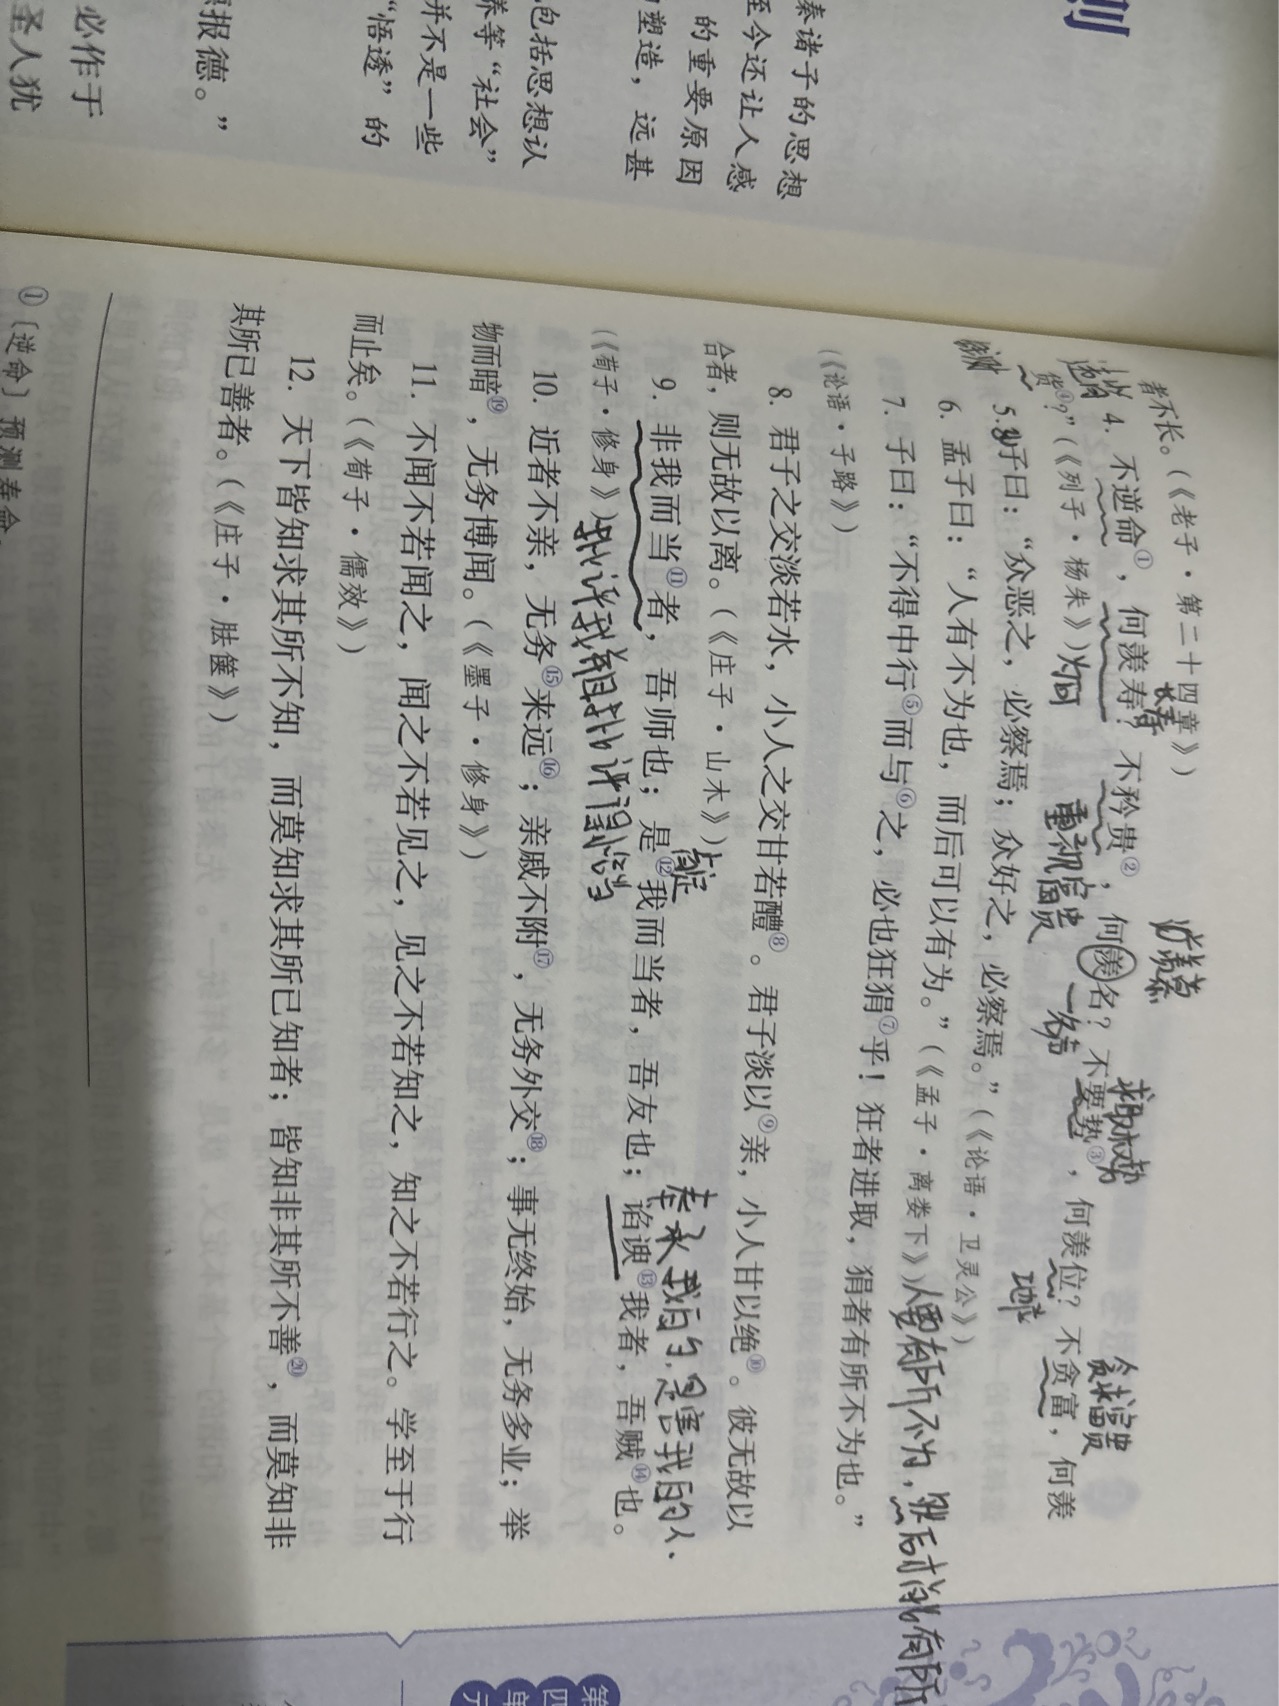 则
秦诸子的思想
至今还让人感
的重要原因
塑造，远甚
包括思想认
养等“社会”
并不是一些
“悟透”的
报德。”
必作于
圣人犹
者不长。（《老子·第二十四章》）
长寿
羡慕
求取权势
贪求富贵
4. 不逆命①，何羡寿？不矜贵②，何羡名？不要势③，何羡位？不贪富，何羡
货④？”（《列子·杨朱》）为何
重视富贵
名誉
地位
5. 子曰：“众恶之，必察焉；众好之，必察焉。”（《论语·卫灵公》）
6. 孟子曰：“人有不为也，而后可以有为。”（《孟子·离娄下》）人要有所不为，然后才能有所
7. 子曰：“不得中行⑤而与⑥之，必也狂狷⑦乎！狂者进取，狷者有所不为也。”
（《论语·子路》）
8. 君子之交淡若水，小人之交甘若醴⑧。君子淡以⑨亲，小人甘以绝⑩。彼无故以
合者，则无故以离。（《庄子·山木》）
肯定
奉承我的，是害我的人.
9. 非我而当⑪者，吾师也；是⑫我而当者，吾友也；谄谀⑬我者，吾贼⑭也。
（《荀子·修身》）批评我并且批评得恰当
10. 近者不亲，无务⑮来远⑯；亲戚不附⑰，无务外交⑱；事无终始，无务多业；举
物而暗⑲，无务博闻。（《墨子·修身》）
11. 不闻不若闻之，闻之不若见之，见之不若知之，知之不若行之。学至于行
而止矣。（《荀子·儒效》）
12. 天下皆知求其所不知，而莫知求其所已知者；皆知非其所不善⑳，而莫知非
其所已善者。（《庄子·胠箧》）
①〔逆命〕预测寿命。
第
四
单
元